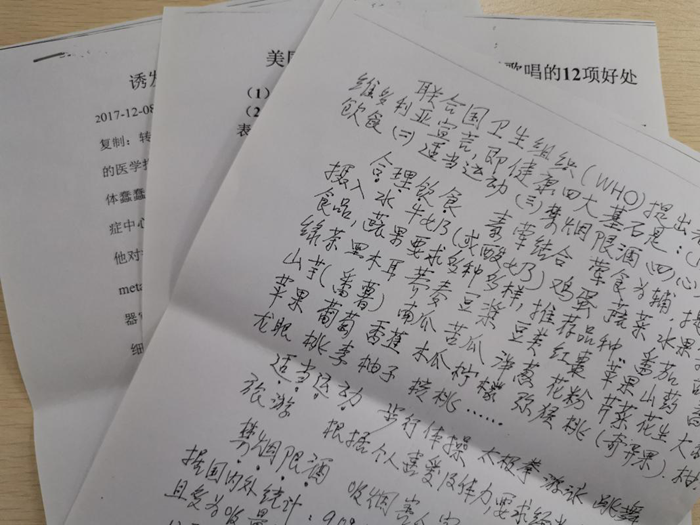 诱发
2017-12-08
复制:转
的医学
体蠢蠢
症中心
他对
meta
器官
细
美国
(1)
(2)
表
歌唱的12项好处
联合国卫生组织(WHO)提出
维多利亚宣言即健康四大基石是:(
饮食(二)适当运动(三)禁烟限酒(四)心
合理饮食 素荤结合 荤食为辅
摄入水牛奶(或酸奶)鸡蛋蔬菜水果
食品,蔬果要求多种多样,推荐品种:番茄
绿茶黑木耳荞麦豆浆豆类红薯苹果山药
山芋(番薯)南瓜苦瓜洋葱花粉芹菜花生大
苹果葡萄香蕉木瓜柠檬弥猴桃(奇异果)
龙眼桃李柚子核桃……
适当运动 步行体操太极拳游泳跳舞
旅游 根据个人喜爱及体力要求
禁烟限酒 吸烟害
据国内外统计,90%
且多为吸